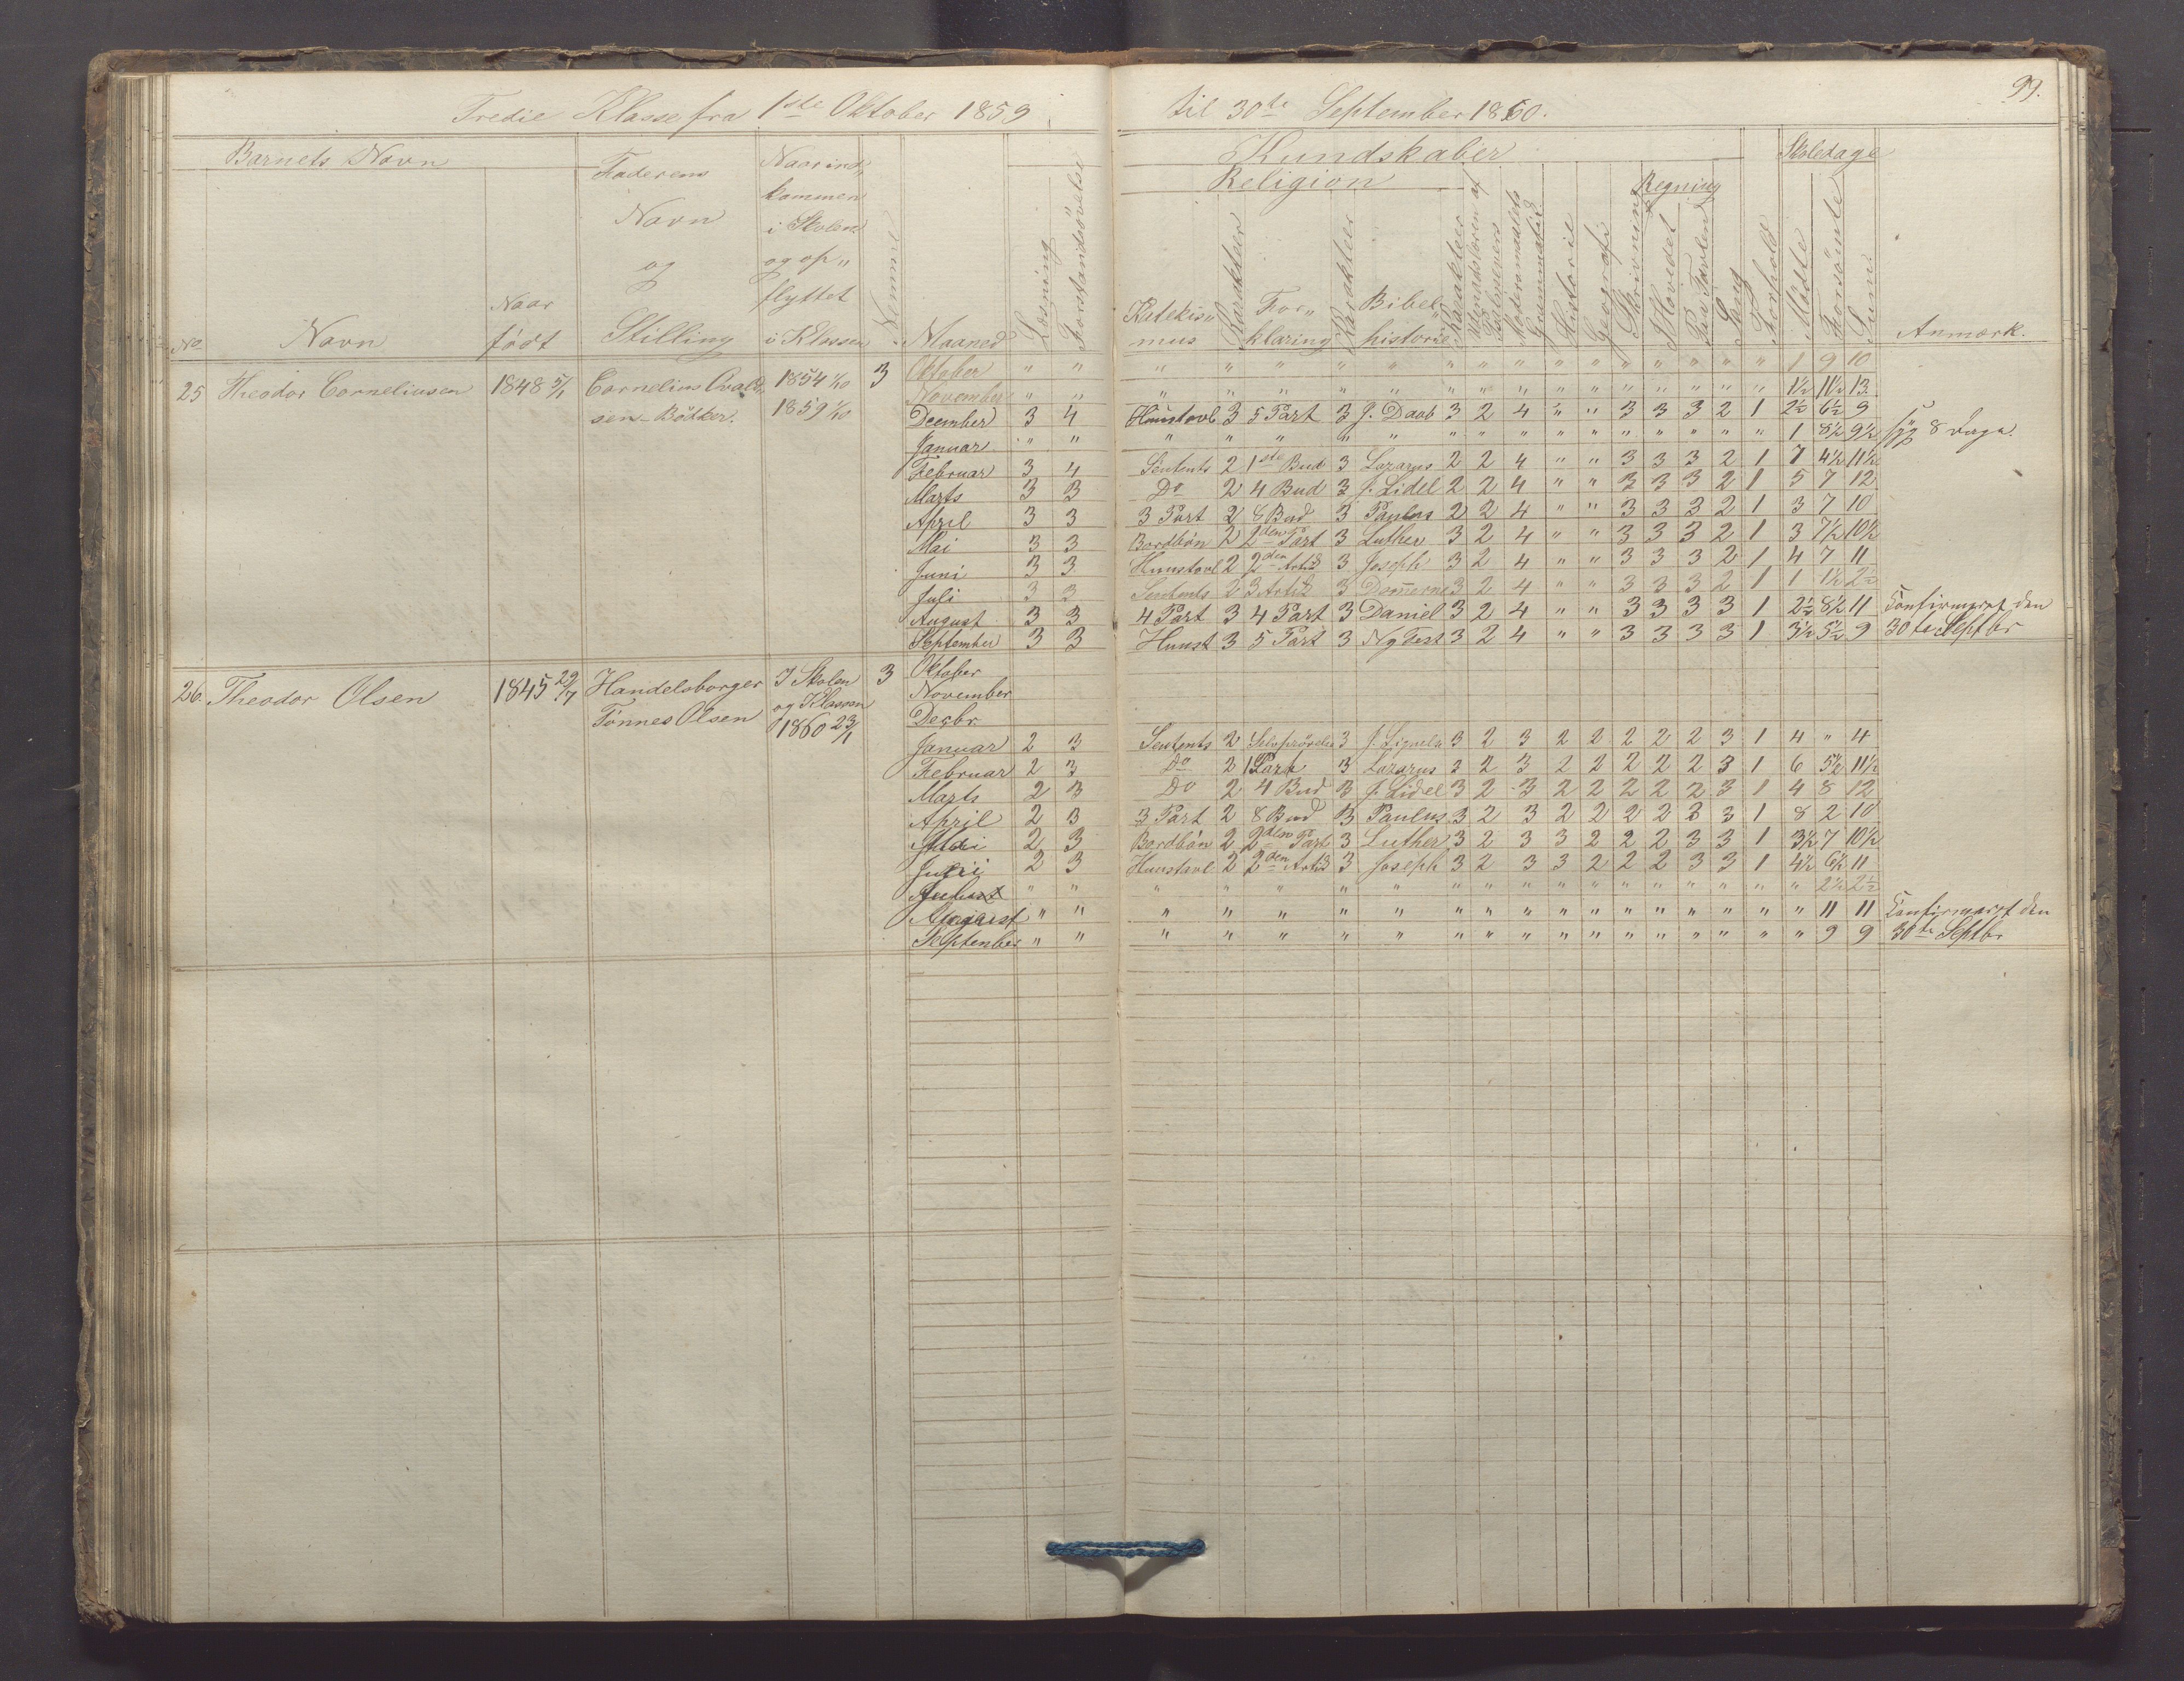 99.
Tredie Klasse fra 1ste Oktober 1859 til 30te September 1860.
Barnets Navn
Kundskaber
Skoledage
Religion
Regning
No
Navn
Naar født
Faderens Navn og Stilling
Naar ind„kommen i Skolen og op„flyttet i Klassen
Nemme
Maaned
Læsning
Forstandsøvelse
Katekis„mus
Karakteer
For„klaring
Karakteer
Bibel„historie
Karakteer
Modersmaalets Grammatik
Historie
Geografi
Skrivning
I Hovedet
Paa Tavlen
Sang
Forhold
Mødte
Forsømte
Sum
Anmærk.
25 Theodor Corneliusen 1848 5/1 Cornelius Ovald„ 1854 1/10 3
sen - Bødker. 1859 1/10
Oktober " " " " " " " " " " " " " " " " " 1 9 10
November " " " " " " " " " " " " " " " " " 1½ 11½ 13
December 3 4 Huustavl 3 5 Part 3 J. Daab 3 2 4 " " 3 3 3 2 1 2½ 6½ 9
Januar " " " " " " " " " " " " " " " " " 1 8½ 9½ syg 8 Dage.
Februar 3 4 Sentents 2 1ste Bud 3 Lazarus 2 2 4 " " 3 3 3 2 1 7 4½ 11½
Marts 3 3 Do 2 4 Bud 3 J. Lidel 2 2 4 " " 3 3 3 2 1 5 7 12
April 3 3 3 Part 2 8 Bud 3 Paulus 2 2 4 " " 3 3 3 2 1 3 7 10
Mai 3 3 Bordbøn 2 2den Part 3 Luther 3 2 4 " " 3 3 3 2 1 3 7½ 10½
Juni 3 3 Huustavl 2 2den Artik 3 Joseph 3 2 4 " " 3 3 3 2 1 4 7 11
Juli 3 3 Sentents 2 3 Artik 3 Dom̄erne 3 2 4 " " 3 3 3 2 1 1 1½ 2½
August 3 3 4 Part 3 4 Part 3 Daniel 3 2 4 " " 3 3 3 3 1 2½ 8½ 11 Confirmeret den
September 3 3 Huust 3 5 Part 3 Ny Test 3 2 4 " " 3 3 3 3 1 3½ 5½ 9 30te Septbr
26. Theodor Olsen 1845 29/7 Handelsborger I Skolen 3
Tønnes Olsen og Klassen
1860 23/1
Oktober
November
Decbr
Januar 2 3 Sentents 2 Selvprøvelse 3 3 2 3 2 2 2 2 2 3 1 4 " 4
Februar 2 3 Do 2 1 Part 3 Lazarus 3 2 3 2 2 2 2 2 3 1 6 5½ 11½
Marts 2 3 Do 2 4 Bud 3 J. Lidel 3 2 3 2 2 2 2 2 3 1 4 8 12
April 2 3 3 Part 2 8 Bud 3 Paulus 3 2 3 2 2 2 2 3 3 1 8 2 10
Mai 2 3 Bordbøn 2 2den Part 3 Luther 3 2 3 3 2 2 2 3 3 1 3½ 7 10½
Juni 2 3 Huustavl 2 2den Artik 3 Joseph 3 2 3 3 2 2 2 3 3 1 4½ 6½ 11
" " " " " " " " " " " " " " " " " " 2½ 2½
August " " " " " " " " " " " " " " " " " " 11 11 Confirmeret den
September " " " " " " " " " " " " " " " " " " 9 9 30te Septbr